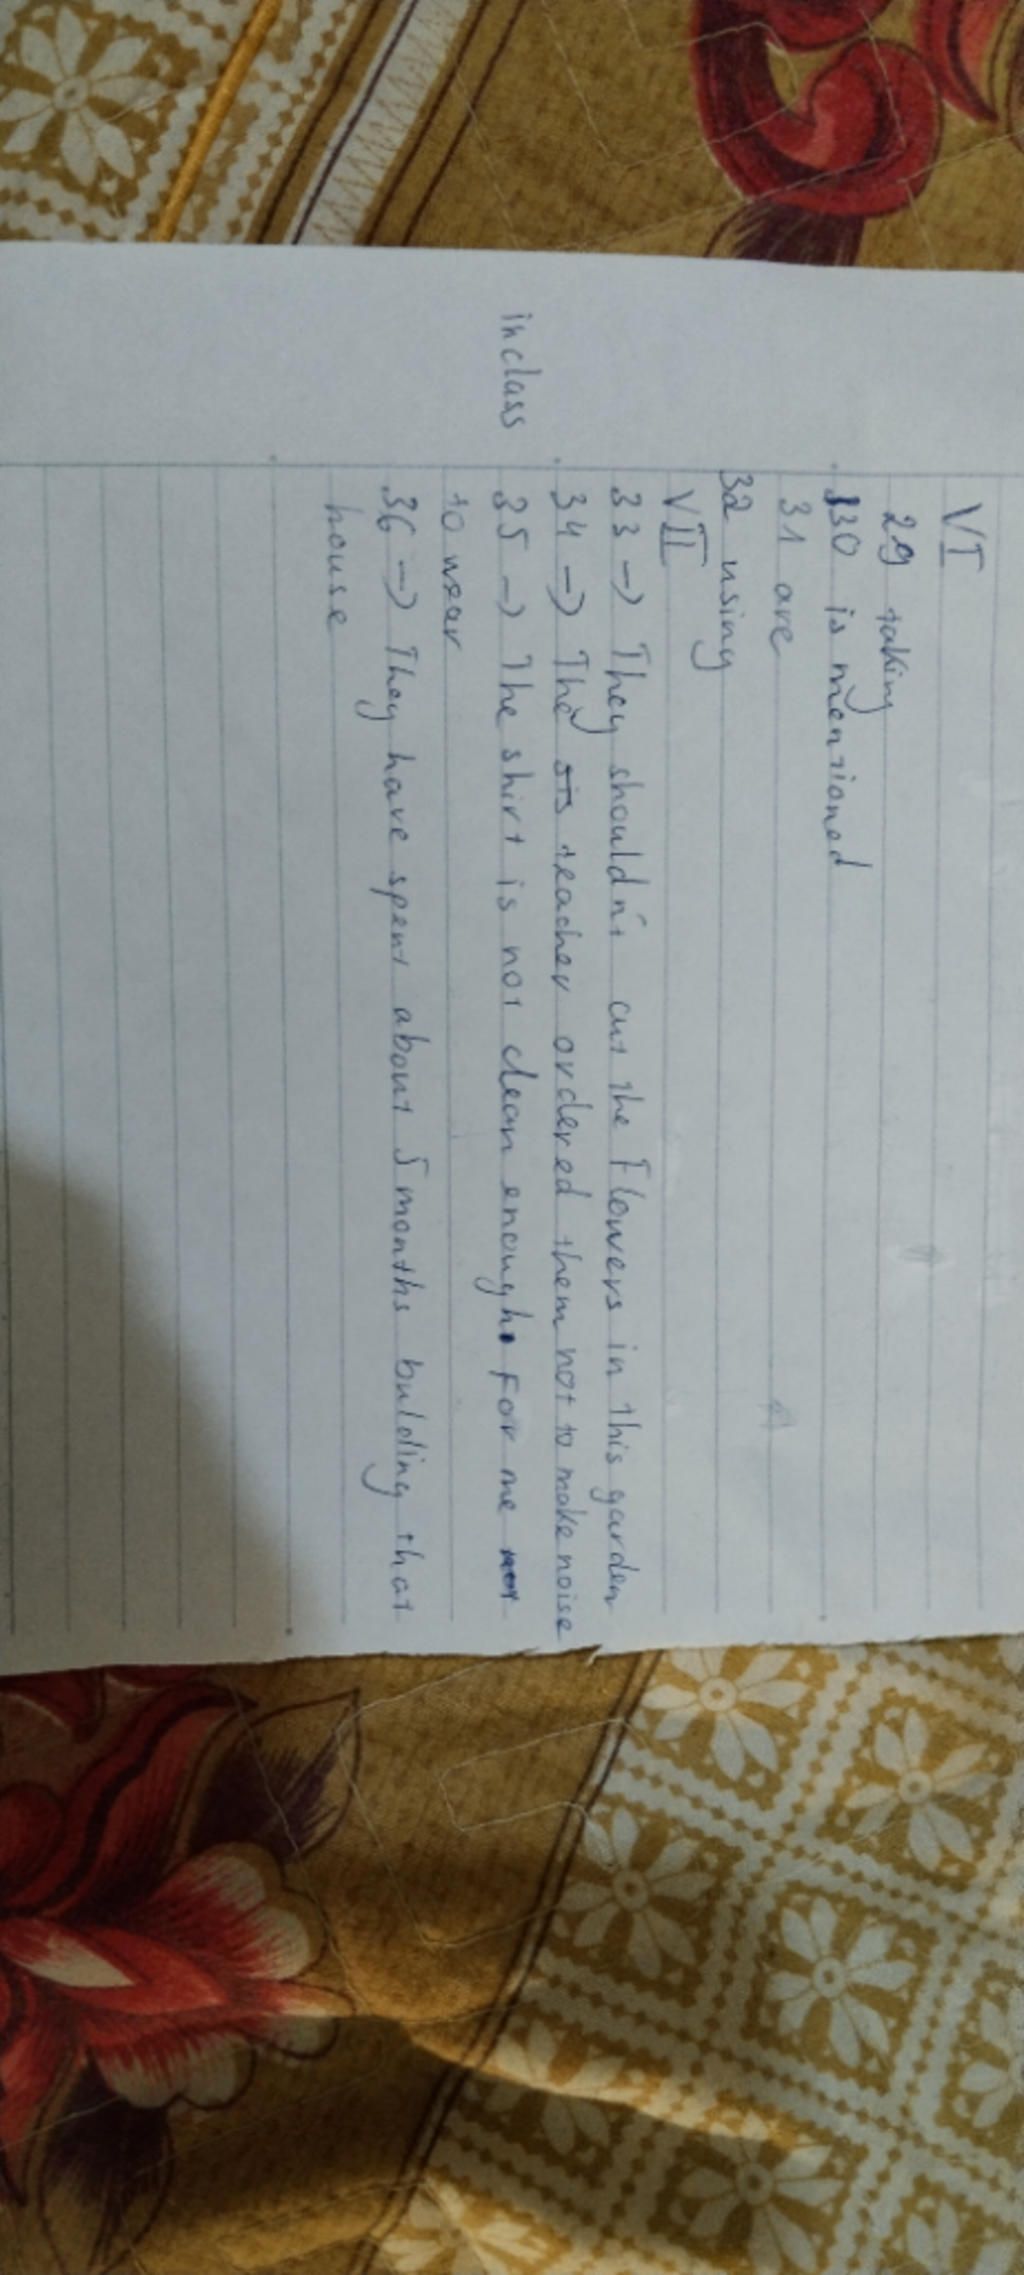 VI
29 taking
30 is mentioned
31 are
32 using
VII
33 → They shouldn't cut the Flowers in this garden
34 → The teacher ordered them not to make noise
in class
35 → The shirt is not clean enough For me
to wear
36 → They have spent about 5 months bulding that
house